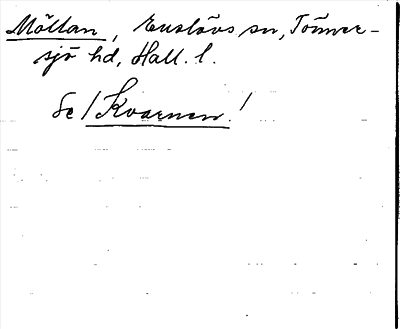 Möllan, Enslövs sn, Tönner-
sjö hd, Hall. l.
Se / Kvarnen. /